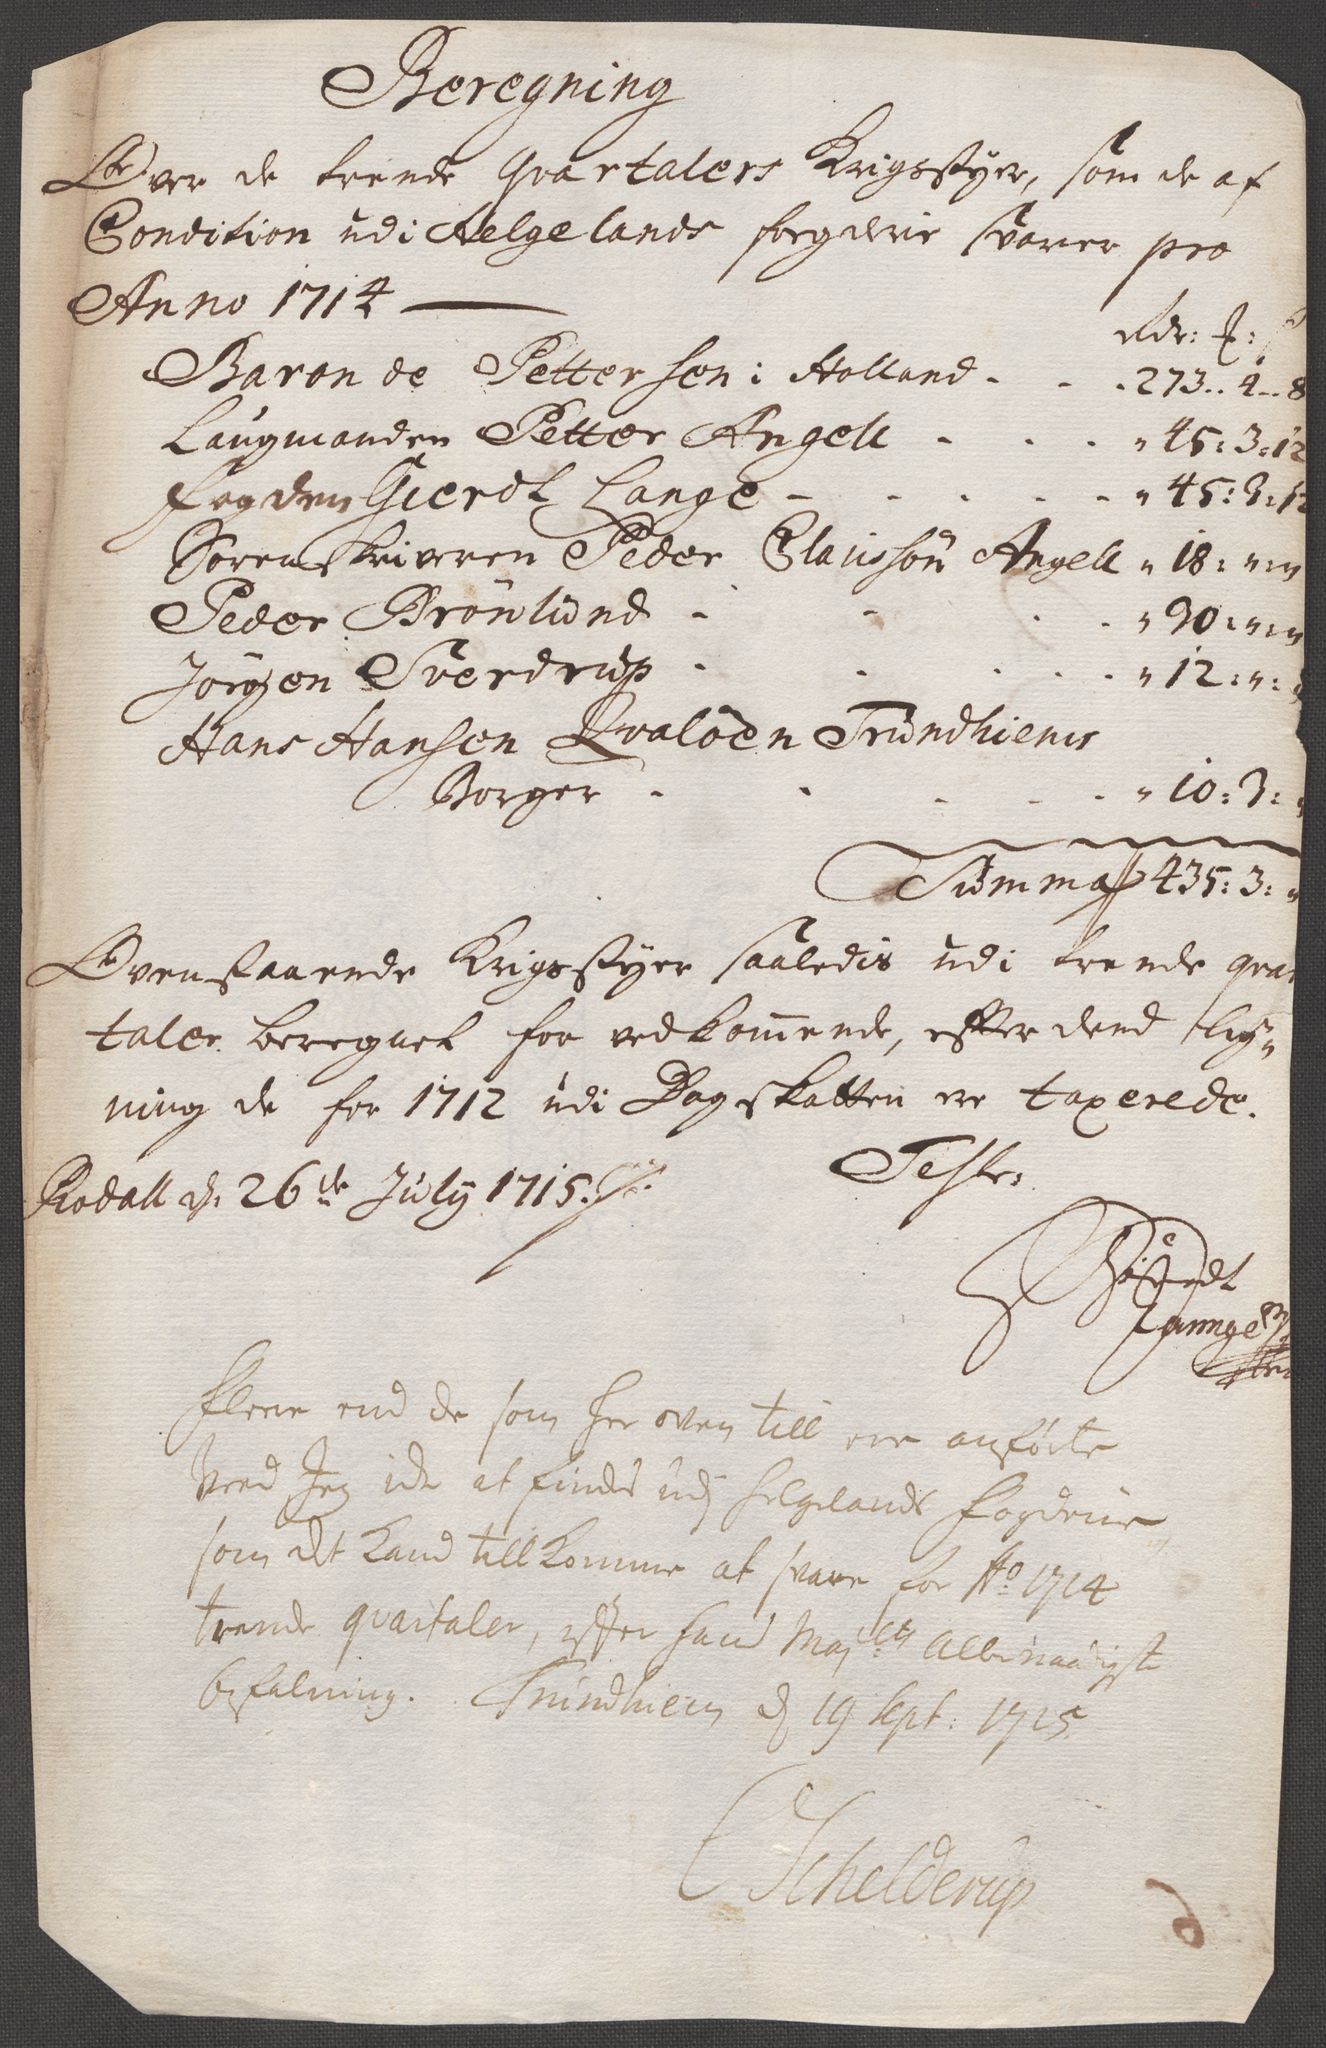 Beregning
Over de trende Qvartalers Krigsstyer, som de af
Condition udi Helgelands fogderie svarer pro
Anno 1714
Rdr:
Baron de Pettersen i Holland - - - 273.. 4.. 8
Laugmanden Petter Angell - - - " 45: 3: 12
fogden Gierdt Lange - - - - - " 45: 3: 12
Sorenskriveren Peder Claussøn Angell " 18: ":"
Peder Brönlund - - - - " 30: ":"
Jörgen Sverdrup - - - - - " 12: ":
Hans Hansen Qvalöen Trundhiems
Borger - - - - - " 10: 3: "
Summa 435: 3: "
Ovenstaaende Krigsstyer saaledis udi trende qvar
taler beregnet for vedkommende, efter dend lig-
ning de for 1712 udi Dagskatten ere taxerede.
Rodall d: 26de July 1715. Tester
Giërdt
Lannge
Flere end de som her oven till ere anförte
veed Jeg icke at findis udj Helgelands fogderie
som det kand tillkomme at svare for Ao 1714
trende qvartaler, efter hans Maj:ts Allernaadigste
befalning. Trundhiem d 19 Sept: 1715
Schelderup